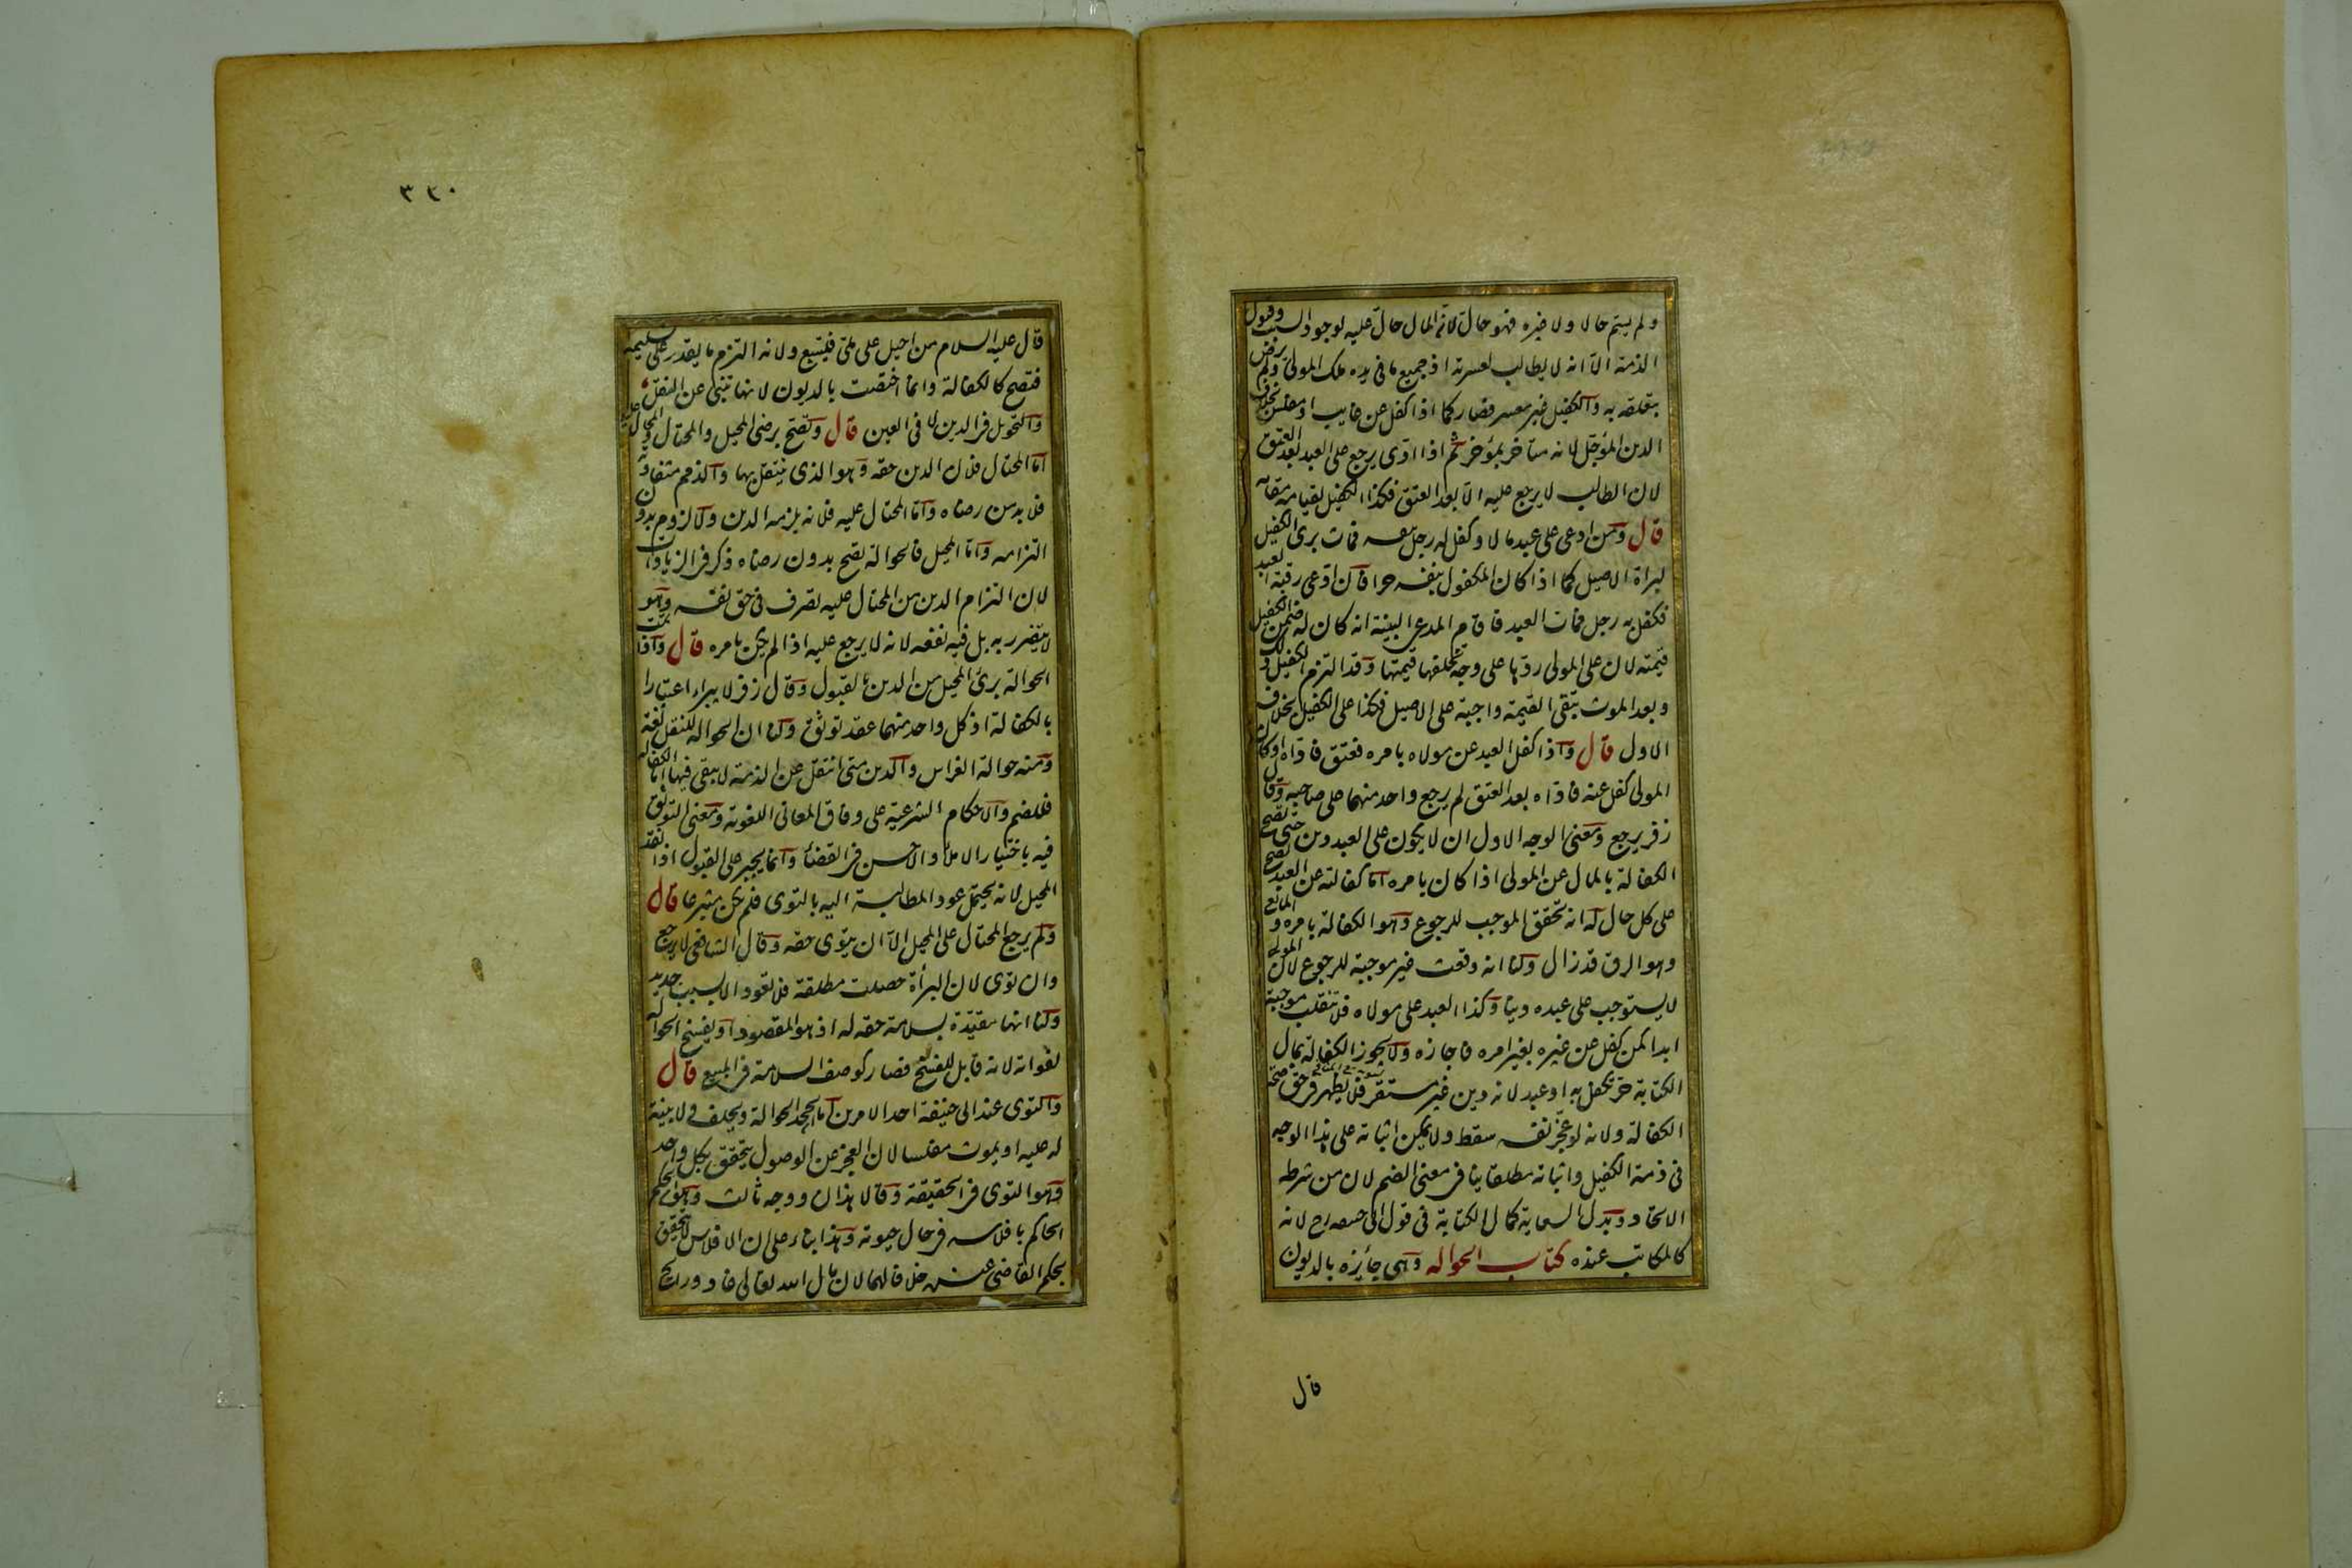 ولم يسم حالا ولا غيره فهو حال لانه المال حال عليه لوجود السبب وقبول
الذمة الا انه لا يطالب لعسرته اذ جميع ما فى يده ملك المولى ولم يرض
بتعلقه به والكفيل غير معسر فصار كما اذا كفل عن غايب او مفلس بخلاف
الدين المؤجل لانه متاخر بمؤخر ثم اذا ادى يرجع على العبد بعد العتق
لان الطالب لا يرجع عليه الا بعد العتق فكذا الكفيل لقيامه مقامه
قال ومن ادعى على عبد مالا وكفل له رجل بنفسه فمات برئ الكفيل
لبراة الاصيل كما اذا كان المكفول بنفسه حرا فان ادعى رقبة العبد
فكفل به رجل فمات العبد فاقام المدعى البينة انه كان له ضمن الكفيل
قيمته لان على المولى ردها على وجه تخلفها قيمتها وقد التزم الكفيل ذلك
وبعد الموت تبقى القيمة واجبة على الاصيل فكذا على الكفيل بخلاف
الاول قال واذا كفل العبد عن مولاه بامره فعتق فاداه او كان
المولى كفل عنه فاداه بعد العتق لم يرجع واحد منهما على صاحبه وقال
زفر يرجع ومعنى الوجه الاول ان لا يكون على العبد دين حتى تصح
الكفالة بالمال عن المولى اذا كان بامره اما كفالته عن العبد تصح
على كل حال له انه تحقق الموجب للرجوع وهو الكفالة بامره والمانع
وهو الرق قد زال ولنا انه وقعت غير موجبة للرجوع لان المولى
لا يستوجب على عبده دينا وكذا العبد على مولاه فلا تنقلب موجبة
ابدا كمن كفل عن غيره بغير امره فاجازه ولا يجوز الكفالة بمال
الكتابة حر تكفل به او عبد لانه دين غير مستقر فلا يظهر فى حق صحة
الكفالة ولانه لو عجز نفسه سقط ولا يمكن اثباته على هذا الوجه
فى ذمة الكفيل واثباته مطلقا ينافى معنى الضم لان من شرطه
الاتحاد وبدل السعاية كمال الكتابة فى قول ابى حنيفة رح لانه
كالمكاتب عنده كتاب الحوالة وهى جائزة بالديون
قال
٣٤٠
قال عليه السلام من احيل على ملئ فليتبع ولانه التزم ما يقدر على تسليمه
فتصح كالكفالة وانما اختصت بالديون لانها تنبئ عن النقل
والتحويل فى الدين لا فى العين قال وتصح برضى المحيل والمحتال والمحتال عليه
اما المحتال فلان الدين حقه وهو الذى ينتقل بها والذمم متفاوتة
فلا بد من رضاه واما المحتال عليه فلانه يلزمه الدين ولا لزوم بدون
التزامه واما المحيل فالحوالة تصح بدون رضاه ذكر فى الزيادات
لان التزام الدين من المحتال عليه تصرف فى حق نفسه وهو
لا يتضرر به بل فيه نفعه لانه لا يرجع عليه اذا لم يكن بامره قال واذا تمت
الحوالة برئ المحيل من الدين بالقبول وقال زفر لا يبراء اعتبارا
بالكفالة اذ كل واحد منهما عقد توثق ولنا ان الحوالة للنقل لغة
ومنه حوالة الغراس والدين متى انتقل عن الذمة لا يبقى فيها اما الكفالة
فللضم والاحكام الشرعية على وفاق المعانى اللغوية ومعنى التوثق
فيه باختيار الاملأ والاحسن فى القضاء وانما يجبر على القبول اذا نقد
المحيل لانه يحتمل عود المطالبة اليه بالتوى فلم يكن متبرعا قال
ولم يرجع المحتال على المحيل الا ان يتوى حقه وقال الشافعى لا يرجع
وان توى لان البرأة حصلت مطلقة فلا تعود الا بسبب جديد
ولنا انها مقيدة بسلامة حقه له اذ هو المقصود او يفسخ الحوالة
لفواته لانه قابل للفسخ فصار كوصف السلامة فى المبيع قال
والتوى عند ابى حنيفة احد الامرين اما يجحد الحوالة ويحلف ولا بينة
له عليه او يموت مفلسا لان العجز عن الوصول يتحقق بكل واحد
وهو التوى فى الحقيقة وقالا هذان ووجه ثالث وهو يحكم
الحاكم بافلاسه فى حال حيوته وهذا بناء على ان الافلاس لا يتحقق
بحكم القاضى عنده خلافا لهما لان مال الله تعالى غاد ورائح